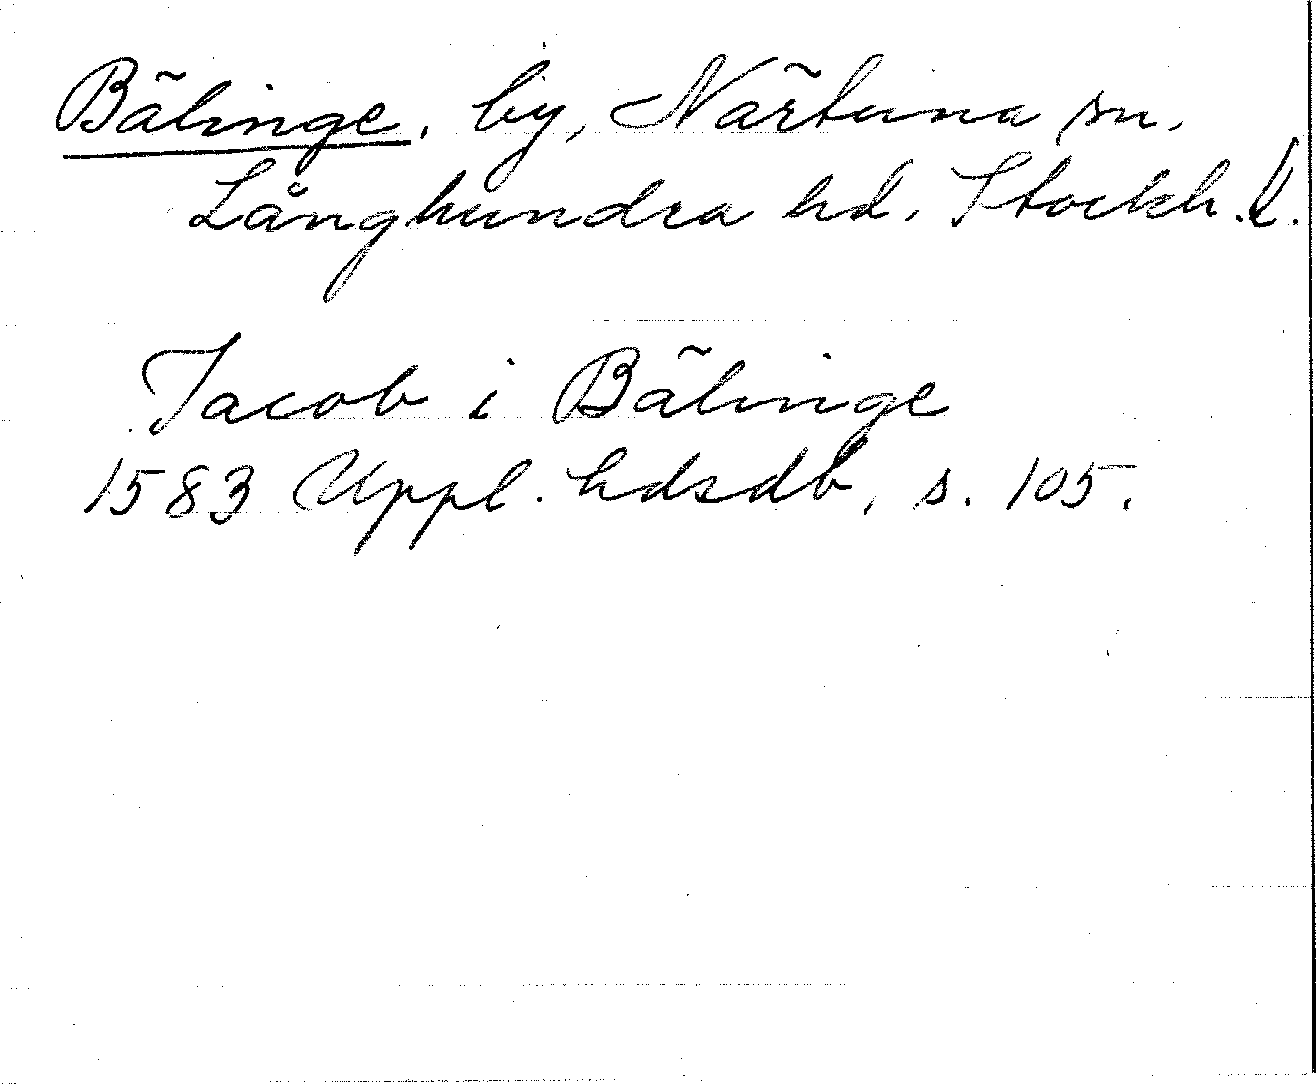 Bälinge, by, Närtuna sn.
Långhundra hd. Stockh. l.
Jacob i Bälinge
1583 Uppl. hdsdb, s. 105.